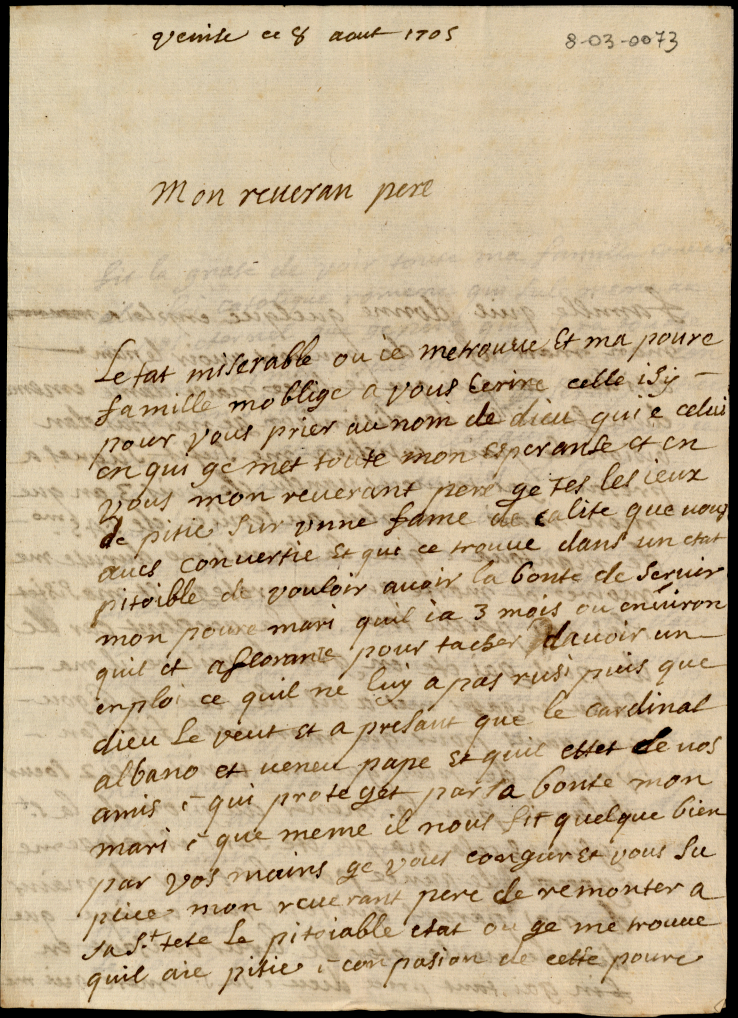 venise ce 8 aout 1705
8-03-0073
Mon reueran pere
Letat miserable ou ce metrouue Et ma poure
famille moblige a vous Ecrire celle isy
pour vous prier au nom de dieu qui e celui
en qui ge met toute mon esperanse et en
vous mon reuerant pere ge tes les ieux
de pitie sur vnne fame de calite que vous
aues conuertie Et que ce trouue dans un etat
pitoible de vouloir auoir la bonte de seruir
mon poure mari quil ia 3 mois ou enuiron
quil et a florante pour tacher dauoir un
enploi ce quil ne luy a pas rusi puis que
dieu Le veut Et a presant que le cardinal
albano et ueneu pape Et quil ettet de vos
amis i qui proteget par sa bonte mon
mari i que meme il nous fit quelque bien
par vos mains ge vous congur Et vous su
pliee mon reuerant pere de remonter a
sa St tete Le pitoiable etat ou ge me trouue
quil aie pitie i conpasion de cette poure